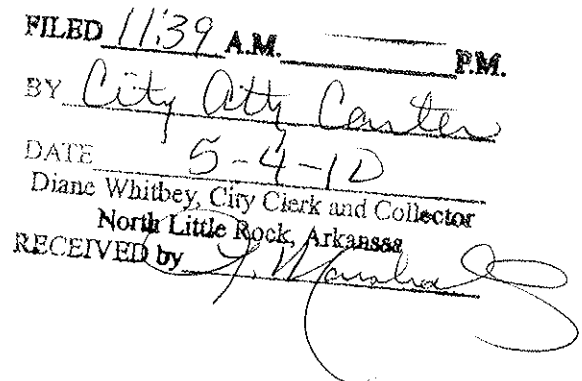 FILED 11:39 A.M. P.M.
BY City Atty Carter
DATE 5-4-10
Diane Whitbey, City Clerk and Collector
North Little Rock, Arkansas
RECEIVED by